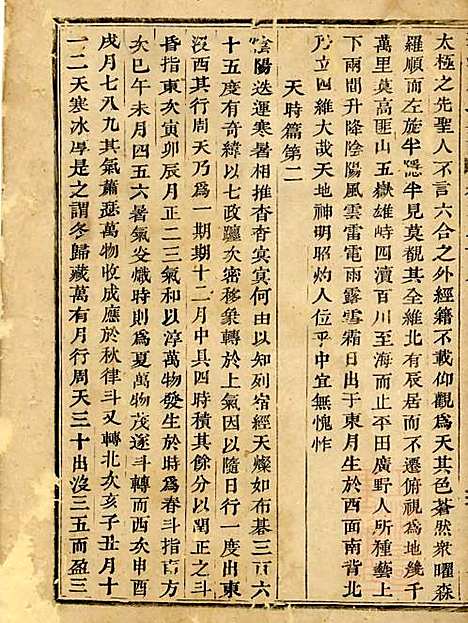 太極之先聖人不言六合之外經籍不載仰觀為天其色蒼然眾曜森
羅順而左旋半隱半見莫覩其全維北有辰居而不遷俯視為地幾千
萬里莫高匪山五嶽雄峙四瀆百川至海而止平田廣野人所種藝上
下兩間升降陰陽風雲雷電雨露雪霜日出于東月生於西面南背北
乃立四維大哉天地神明昭灼人位乎中宜無愧怍
天時篇第二
陰陽迭運寒暑相推杳杳冥冥何由以知列宿經天燦如布碁三百六
十五度有奇緯以七政躔次密移象轉於上氣因以隨日行一度出東
沒西其行周天乃為一期期十二月中具四時積其餘分以閏正之斗
昏指東次寅卯辰月正二三氣和以淳萬物發生於時為春斗指南方
次巳午未月四五六暑氣交熾時則為夏萬物茂遂斗轉而西次申酉
戌月七八九其氣蕭瑟萬物收成應於秋律斗又轉北次亥子丑月十
一二天寒冰厚是之謂冬歸藏萬有月行周天三十出沒三五而盈三